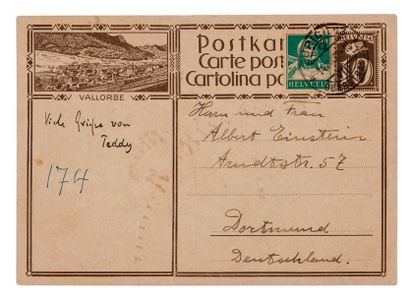 Postkar
Carte post
Cartolina po
HELVETIA
HELVETIA
10
VALLORBE
Viele Grüße von
Teddy
174
Herrn und Frau
Albert Einstein
Arndtstr. 57
Dortmund
Deutschland.